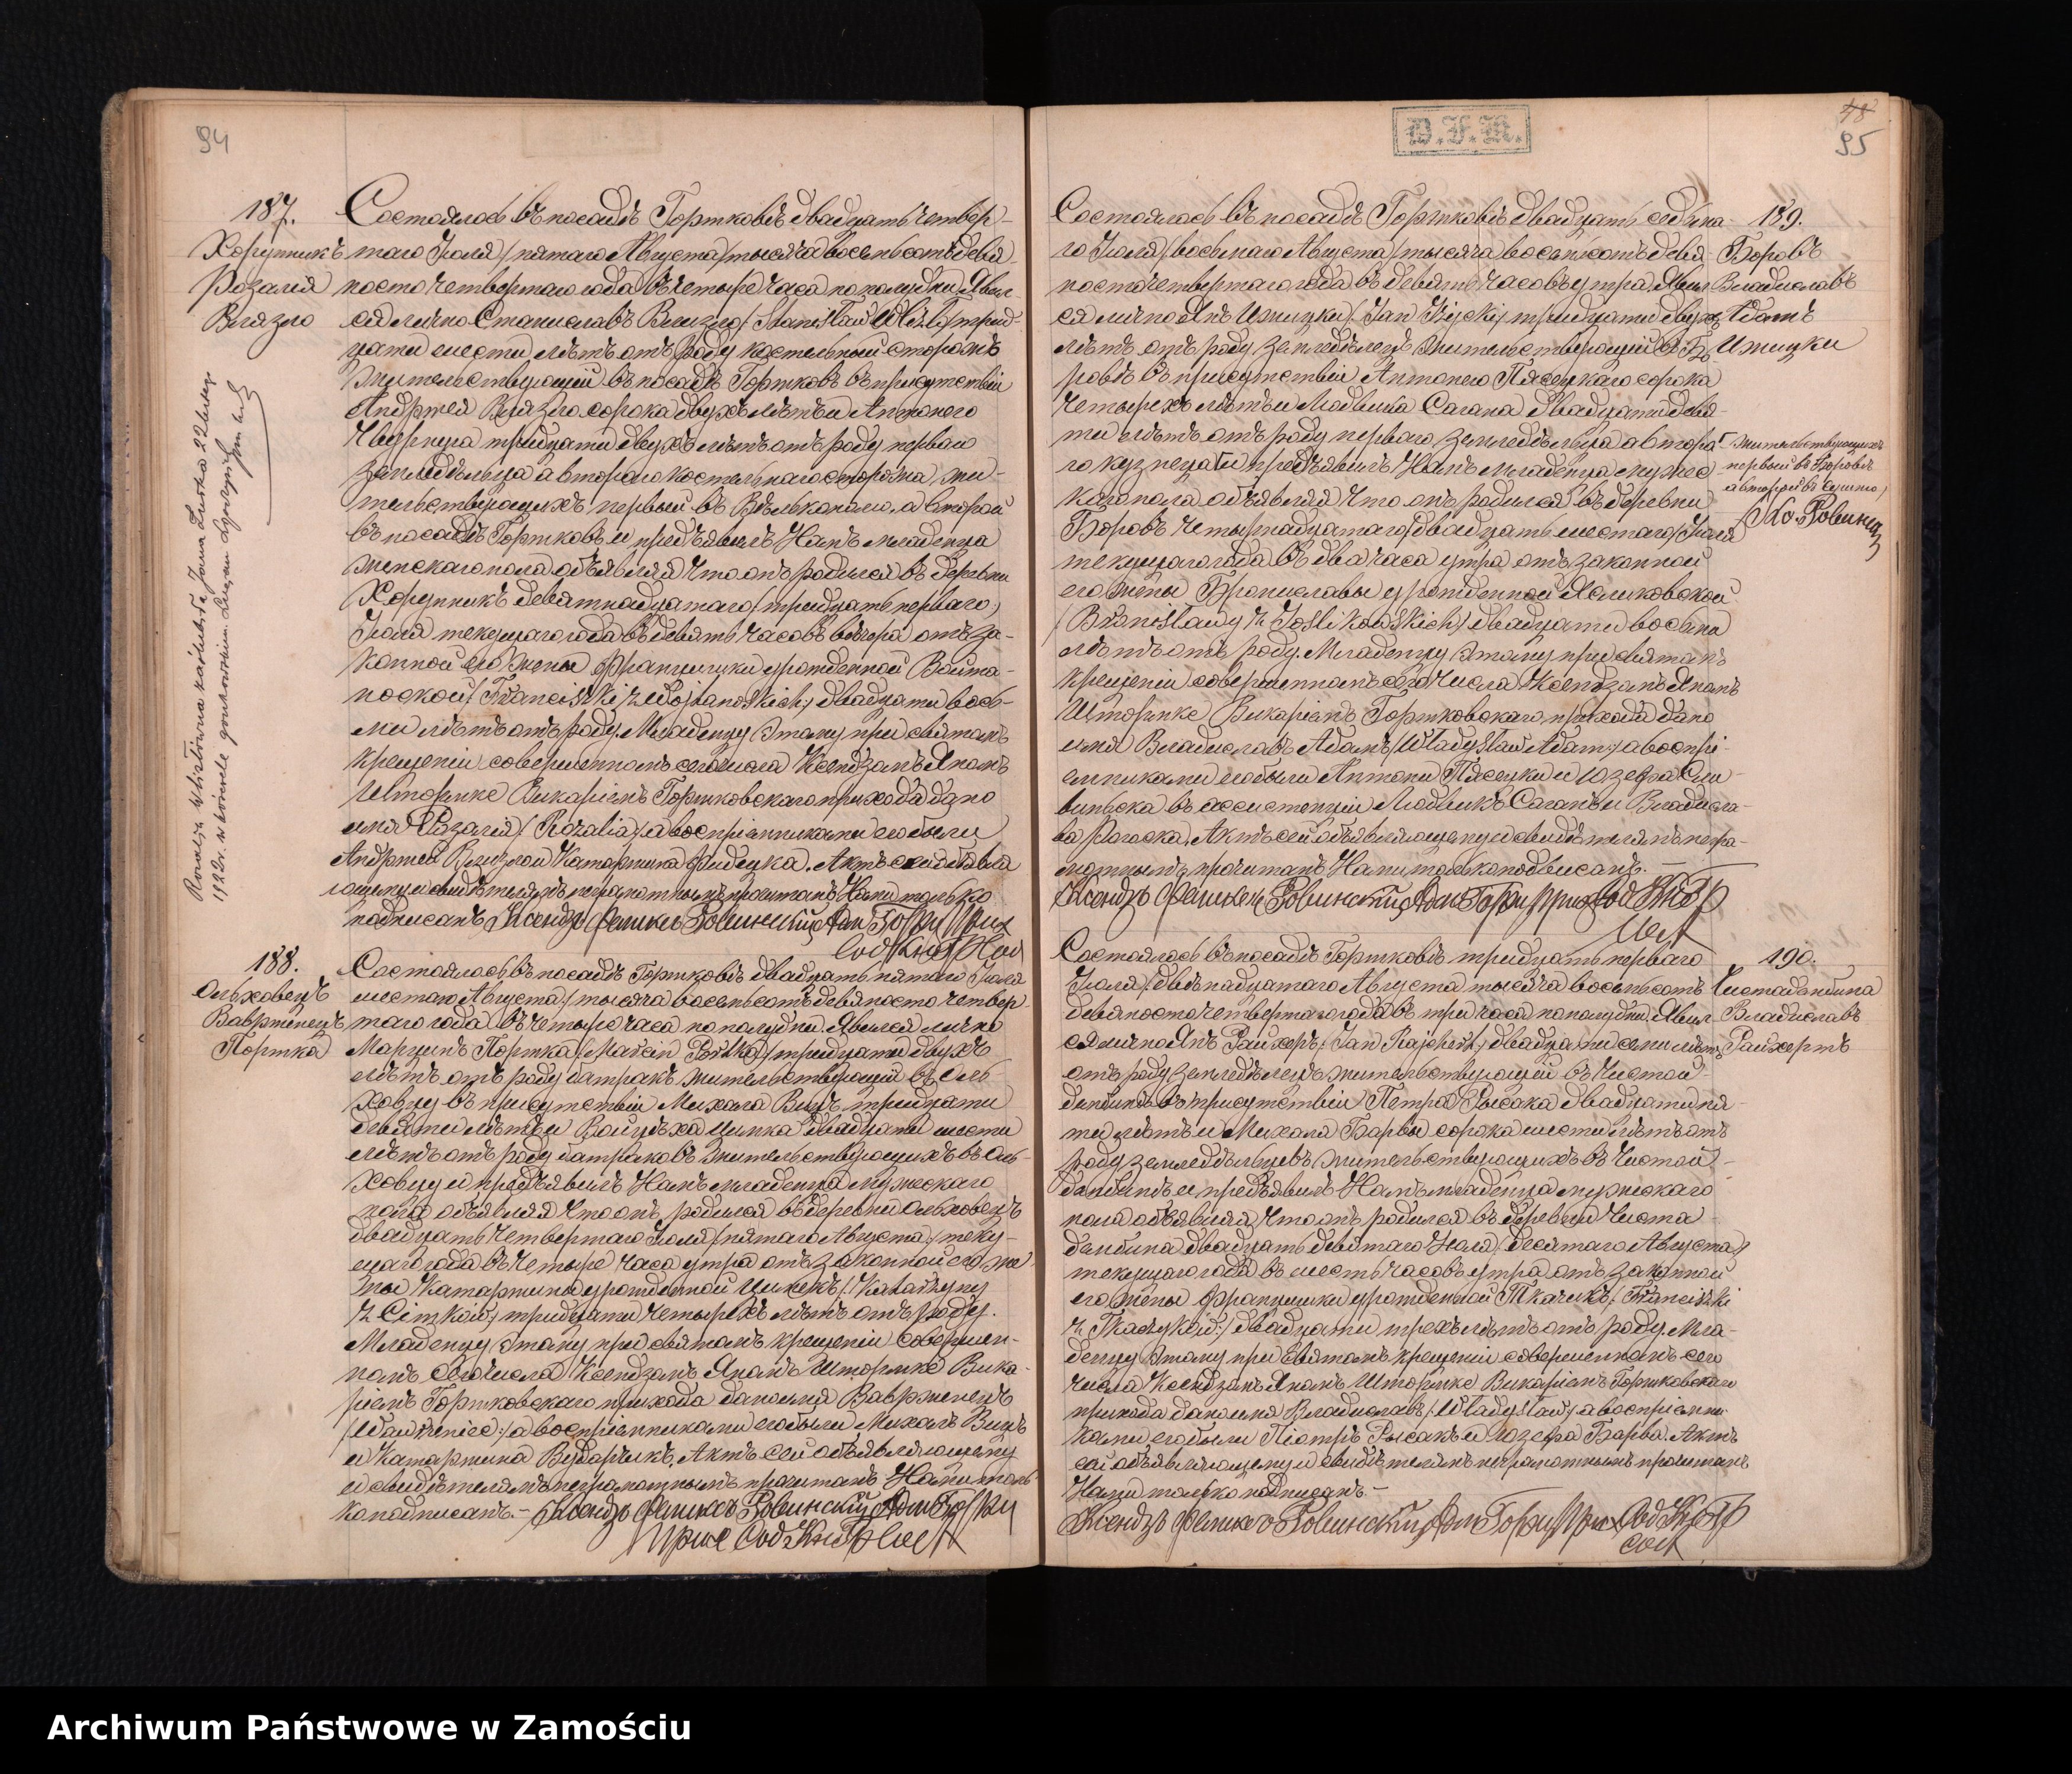 94
187.
Хорупникъ
Розалія
Состоялось въ посадѣ Горжковѣ двадцать четвер-
таго Іюля /пятаго Августа/ тысяча восемьсотъ девя-
носто четвертаго года въ четыре часа по полудни. Явил-
ся лично Станиславъ /Stanisław трид-
цати шести лѣтъ отъ роду костельный сторожъ
жительствующій въ посадѣ Горжковъ въ присутствіи
Андржея сорока двухъ лѣтъ и Антонего
тридцати двухъ лѣтъ отъ роду первого
земледѣльца а второго костельнаго сторожа, жи-
тельствующихъ первый въ а второй
въ посадѣ Горжковъ и предъявилъ Намъ младенца
женскаго пола объявляя что онъ родился въ деревни
Хорупникъ девятнадцатаго /тридцать перваго/
Іюля текущаго года въ девять часовъ вечера отъ за-
конной его жены Францишки урожденной Война-
ноской /Franciszki z Wojtanoskich/ двадцати вось-
ми лѣтъ отъ роду. Младенцу этому при святомъ
крещеніи совершенномъ сего числа Ксендзомъ Яномъ
Шторпке Викаріемъ Горжковскаго прихода дано
имя Розалія /Rozalia/ а воспріемниками его были
Андржей и Катаржина Акт сей объявля-
ющему и свидѣтелямъ неграмотнымъ прочитанъ Нами только
подписанъ Ксендзъ Феликсъ Ровинскій
188.
Ольховецъ
Вавржинецъ
Портка
Состоялось въ посадѣ Горжковѣ двадцать пятаго Іюля
шестаго Августа/ тысяча восемьсотъ девяносто четвер-
таго года въ четыре часа по полудни. Явился лично
Марцинъ Портка /Marcin Portka/ тридцати двухъ
лѣтъ отъ роду батракъ жительствующій въ Оль-
ховцу въ присутствіи Михала Вицъ тридцати
девяти лѣтъ и Войцѣха двадцати шести
лѣтъ отъ роду батраковъ жительствующихъ въ Оль-
ховцу и предъявилъ Намъ младенца мужескаго
пола объявляя что онъ родился въ деревни Ольховецъ
двадцать четвертаго Іюля /пятаго Августа/ теку-
щаго года въ четыре часа утра отъ законной его же-
ны Катаржины урожденной /Katarzyny
тридцати четырехъ лѣтъ отъ роду.
Младенцу этому при святомъ крещеніи совершен-
номъ сего числа Ксендзомъ Яномъ Шторпке Вика-
ріемъ Горжковскаго прихода дано имя Вавржинецъ
/Wawrzeniec/ а воспріемниками его были Михалъ Вицъ
и Катаржина Актъ сей объявляющему
и свидѣтелямъ неграмотнымъ прочитанъ Нами толь-
ко подписанъ.- Ксендзъ Феликсъ Ровинскій
D.F.R.
48
95
189.
Боровъ
Владиславъ
Адамъ
Ижицки
Состоялось въ посадѣ Горжковѣ двадцать седьма-
го Іюля /восьмаго Августа/ тысяча восемьсотъ девя-
носто четвертаго года въ девять часовъ утра. Явил-
ся лично Янъ Ижицки /Jan Iżycki/ тридцати двухъ
лѣтъ отъ роду земледѣлецъ жительствующій въ Бо-
ровѣ въ присутствіи Антонего Пясецкаго сорока
четырехъ лѣтъ и Людвика Сагана двадцати девя-
ти лѣтъ отъ роду первого земледѣльца а второ-
го кузнеца и предъявилъ Намъ младенца мужес-
каго пола объявляя что онъ родился въ деревни
Боровъ четырнадцатаго /двадцать шестаго/ Іюля
текущаго года въ два часа утра отъ законной
его жены Брониславы урожденной
/Bronisławy z двадцати восьми
лѣтъ отъ роду. Младенцу этому при святомъ
крещеніи совершенномъ сего числа Ксендзомъ Яномъ
Шторпке Викаріемъ Горжковскаго прихода дано
имя Владиславъ Адамъ /Władysław Adam/ а воспрі-
емниками его были Антони Пясецки и Юзефа Сли-
виньска въ ассистенціи Людвикъ Саганъ и Владисла-
ва Рогоска. Актъ сей объявляющему и свидѣтелямъ негра-
мотнымъ прочитанъ Нами только подписанъ.
Ксендзъ Феликсъ Ровинскій
жительствующихъ
первый въ Боровѣ
а второй въ
Кс. Ровинск
190.
Чистадембина
Владиславъ
Райхертъ
Состоялось въ посадѣ Горжковѣ тридцать перваго
Іюля /двѣнадцатаго Августа тысяча восемьсотъ
девяносто четвертаго года въ три часа по полудни. Явил-
ся лично Янъ Райхертъ /Jan Rajchert/ двадцати семи лѣтъ
отъ роду земледѣлецъ жительствующій въ Чистой-
дембинѣ въ присутствіи Петра Рысака двадцати пя-
ти лѣтъ и Михала Барвы сорока шести лѣтъ отъ
роду земледѣльцевъ жительствующихъ въ Чистой-
дембинѣ и предъявилъ Намъ младенца мужескаго
пола объявляя что онъ родился въ деревни Чиста
дембина двадцать девятаго Іюля /десятаго Августа/
текущаго года въ шесть часовъ утра отъ законной
его жены Францишки урожденной Ткачукъ /Franciszki
z Tkaczuków/ двадцати трехъ лѣтъ отъ роду. Мла-
денцу этому при святомъ крещеніи совершенномъ сего
числа Ксендзомъ Яномъ Шторпке Викаріемъ Горжковскаго
прихода дано имя Владиславъ /Władysław/ а воспріемни-
ками его были Піотръ Рысакъ и Юзефа Барва. Актъ
сей объявляющему и свидѣтелямъ неграмотнымъ прочитанъ
Нами только подписанъ.-
Ксендзъ Феликсъ Ровинскій
Archiwum Państwowe w Zamościu